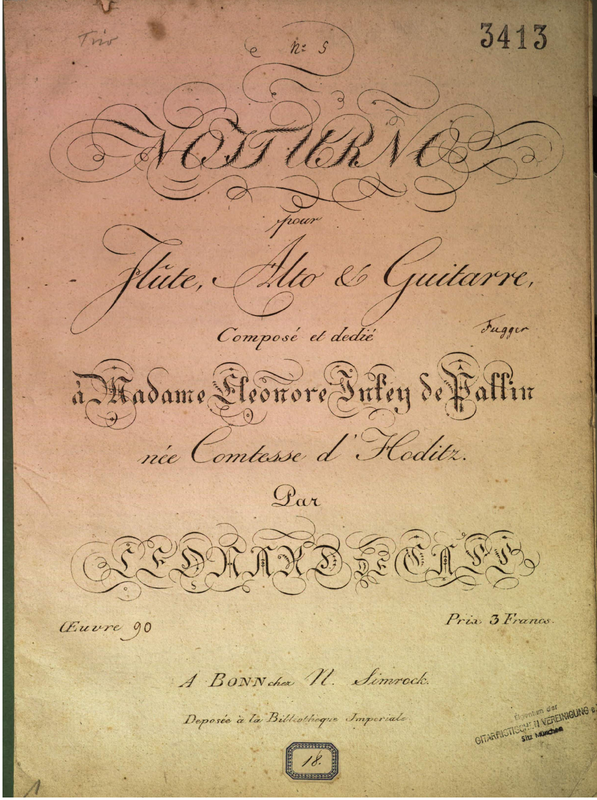 Trio
No. 5
3413
NOTTURNO
pour
Flûte, Alto & Guitarre,
Composé et dedié
Fugger
à Madame Eleonore Inkey de Pallin
née Comtesse d'Hoditz.
Par
LEONARD DE CALL
Œuvre 90
Prix 3 Francs.
A BONN chez N. Simrock.
Deposée à la Bibliotheque Imperiale
Eigentum der
GITARRISTISCHEN VEREINIGUNG e.
Sitz München
18.
1